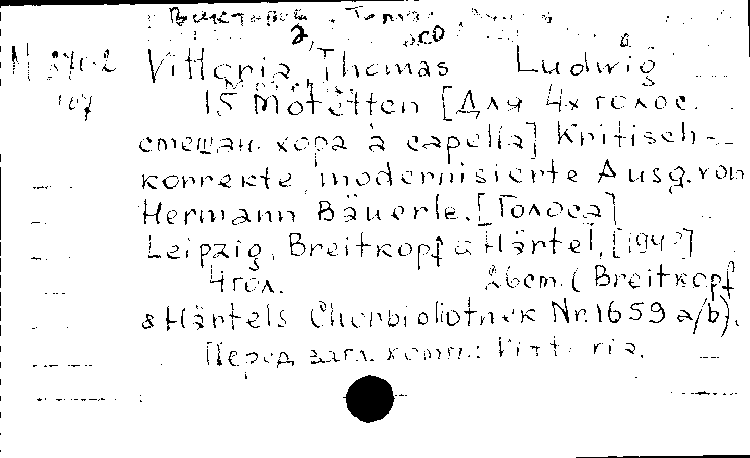 Vittoria, Thomas Ludwig
15 Motetten [Для 4х голос.
смешан. хора à capella] Kritisch-
korrekte, modernisierte Ausg. von
Hermann Bäuerle. [Голоса]
Leipzig, Breitkopf & Härtel, [194?]
4 гол. 26 cm. (Breitkopf
& Härtels Chorbibliothek Nr. 1659 a/b).
Перед загл. комп.: Vittoria.